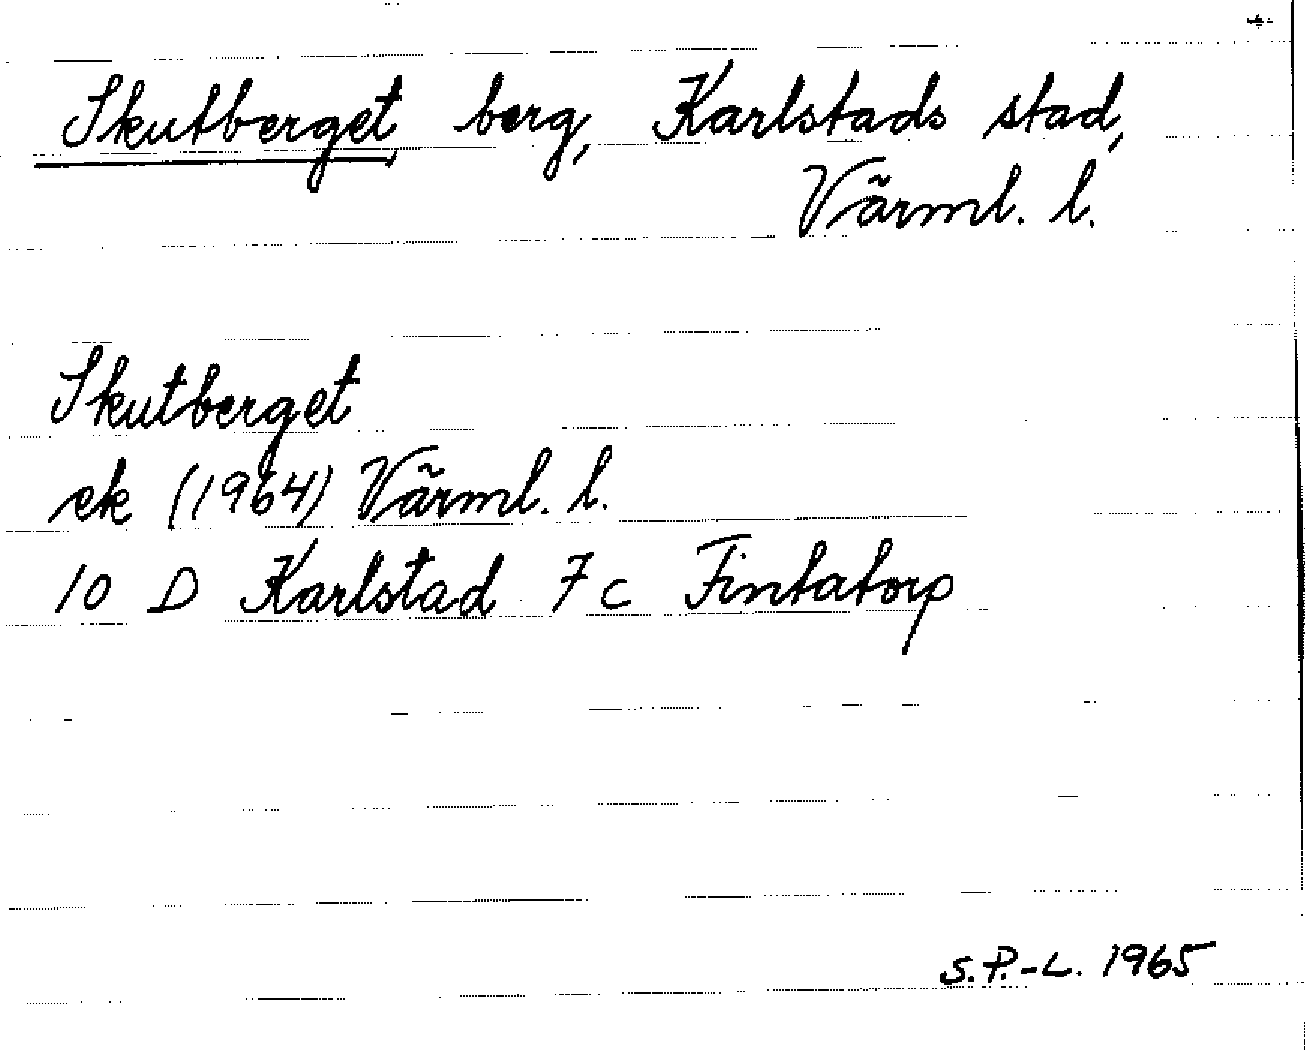 Skutberget, berg, Karlstads stad,
Värml. l.
Skutberget
ek (1964) Värml. l.
10 D Karlstad 7 c Fintatorp
S.P.-L. 1965